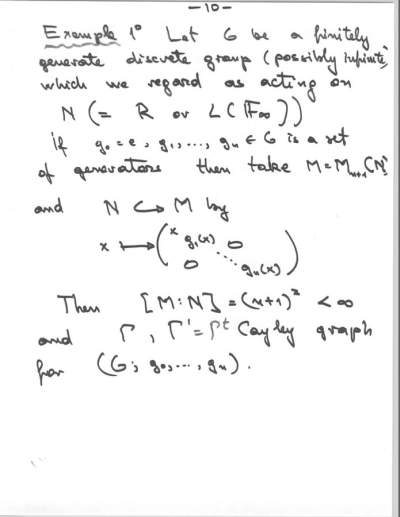 -10-
Example 1° Let G be a finitely
generate discrete group (possibly infinite,
which we regard as acting on
N (= R or L(F∞))
if g₀=e, g₁,..., gₙ ∈ G is a set
of generators then take M=Mₙ₊₁(N)
and N ↪ M by
x ⟼ (x g₁(x) 0
0 ⋱ gₙ(x))
Then [M:N] = (n+1)² < ∞
and Γ, Γ'=Γᵗ Cayley graph
for (G; g₀,..., gₙ).